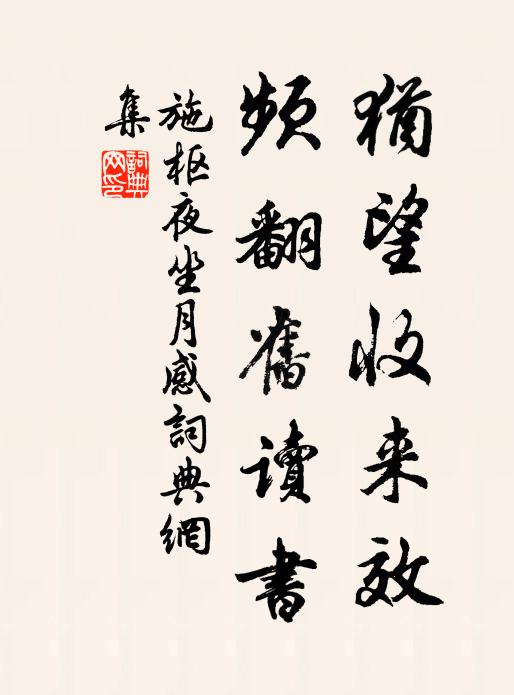 猶望收来效
頻翻舊讀書
施枢夜坐月感詞典網
集
詞典
网印